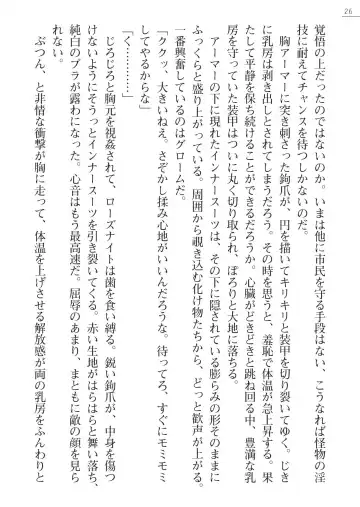 26
覚悟の上だったのではないのか。いまは他に市民を守る手段はない、こうなれば怪物の淫
技に耐えてチャンスを待つしかないのだ。
胸アーマーに突き刺さった鉤爪が、円を描いてキリキリと装甲を切り裂いてゆく。じき
に乳房は剥き出しとされてしまうだろう。その時を思うと、羞恥で体温が急上昇する。果
たして平静を保ち続けることができるだろうか。心臓がどきどきと跳ね回る中、豊満な乳
房を守っていた装甲はついに丸く切り取られ、ぽろりと大地に落ちる。
アーマーの下に現れたインナースーツは、その下に隠されている膨らみの形そのままに
ふっくらと盛り上がっている。周囲から覗き込む化け物たちから、どっと歓声が上がる。
一番興奮しているのはグロームだ。
「ククッ、大きいねえ。さぞかし揉み心地がいいんだろうな。待ってろ、すぐにモミモミ
してやるからな」
「く…………」
じろじろと胸元を視姦されて、ローズナイトは歯を食い縛る。鋭い鉤爪が、中身を傷つ
けないようにそうっとインナースーツを引き裂いてくる。赤い生地がはらはらと舞い落ち、
純白のブラが露わになった。心音はもう最高速だ。屈辱のあまり、まともに敵の顔を見ら
れない。
ぶつん、と非情な衝撃が胸に走って、体温を上げさせる解放感が両の乳房をふんわりと